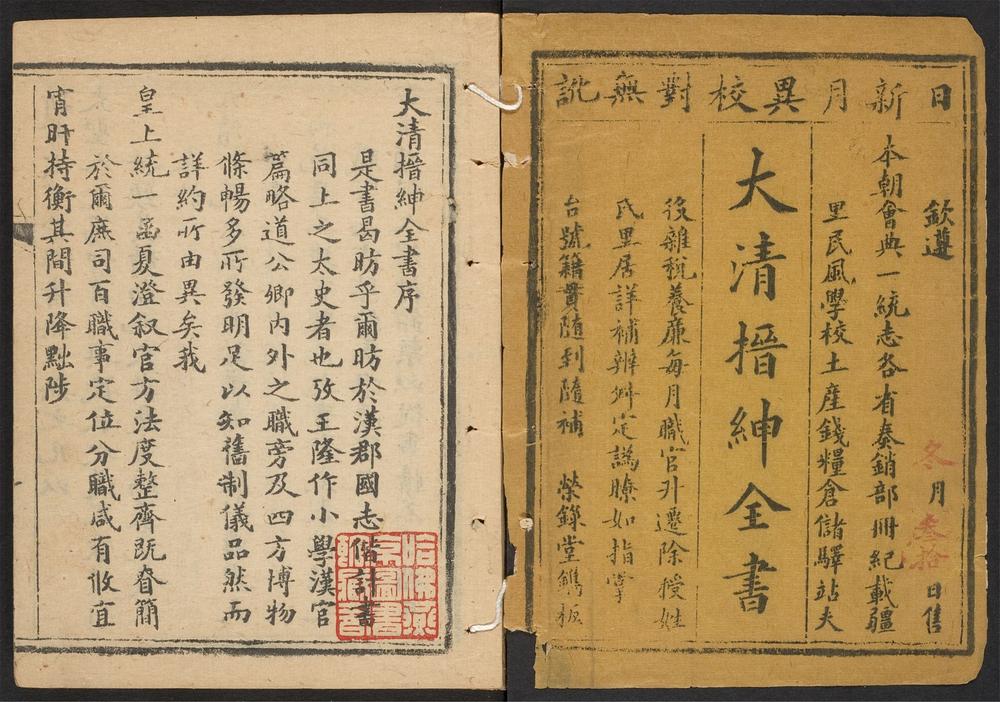 日新月異校對無訛
欽遵
本朝會典一統志各有奏銷部冊紀載疆
里民風學校土產錢糧倉儲驛站夫
大清搢紳全書
後雜稅養廉每月職官升遷除授姓
氏里居詳補辨舛定譌瞭如指掌
台號籍貫隨到隨補 榮錄堂鐫板
冬月叁拾日售
大清搢紳全書序
是書曷昉乎爾昉於漢郡國志偕計書
同上之太史者也攷王隆作小學漢官
篇略道公卿內外之職旁及四方博物
條暢多所發明足以知舊制儀品然而
詳約所由異矣我
皇上統一函夏澄叙官方法度整齊既眷簡
於爾庶司百職事定位分職咸有攸宜
宵旰持衡其間升降黜陟
哈佛燕京圖書館